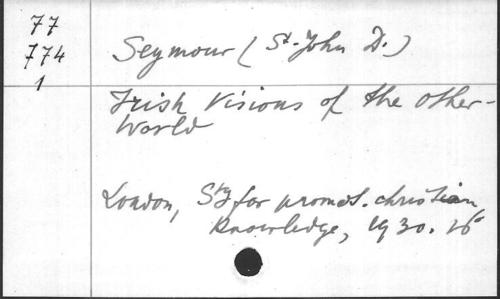 77
774
1
Seymour (St. John D.)
Irish Visions of the Other-
World
London, Sty for promot. christian
Knowledge, 1930. 16°